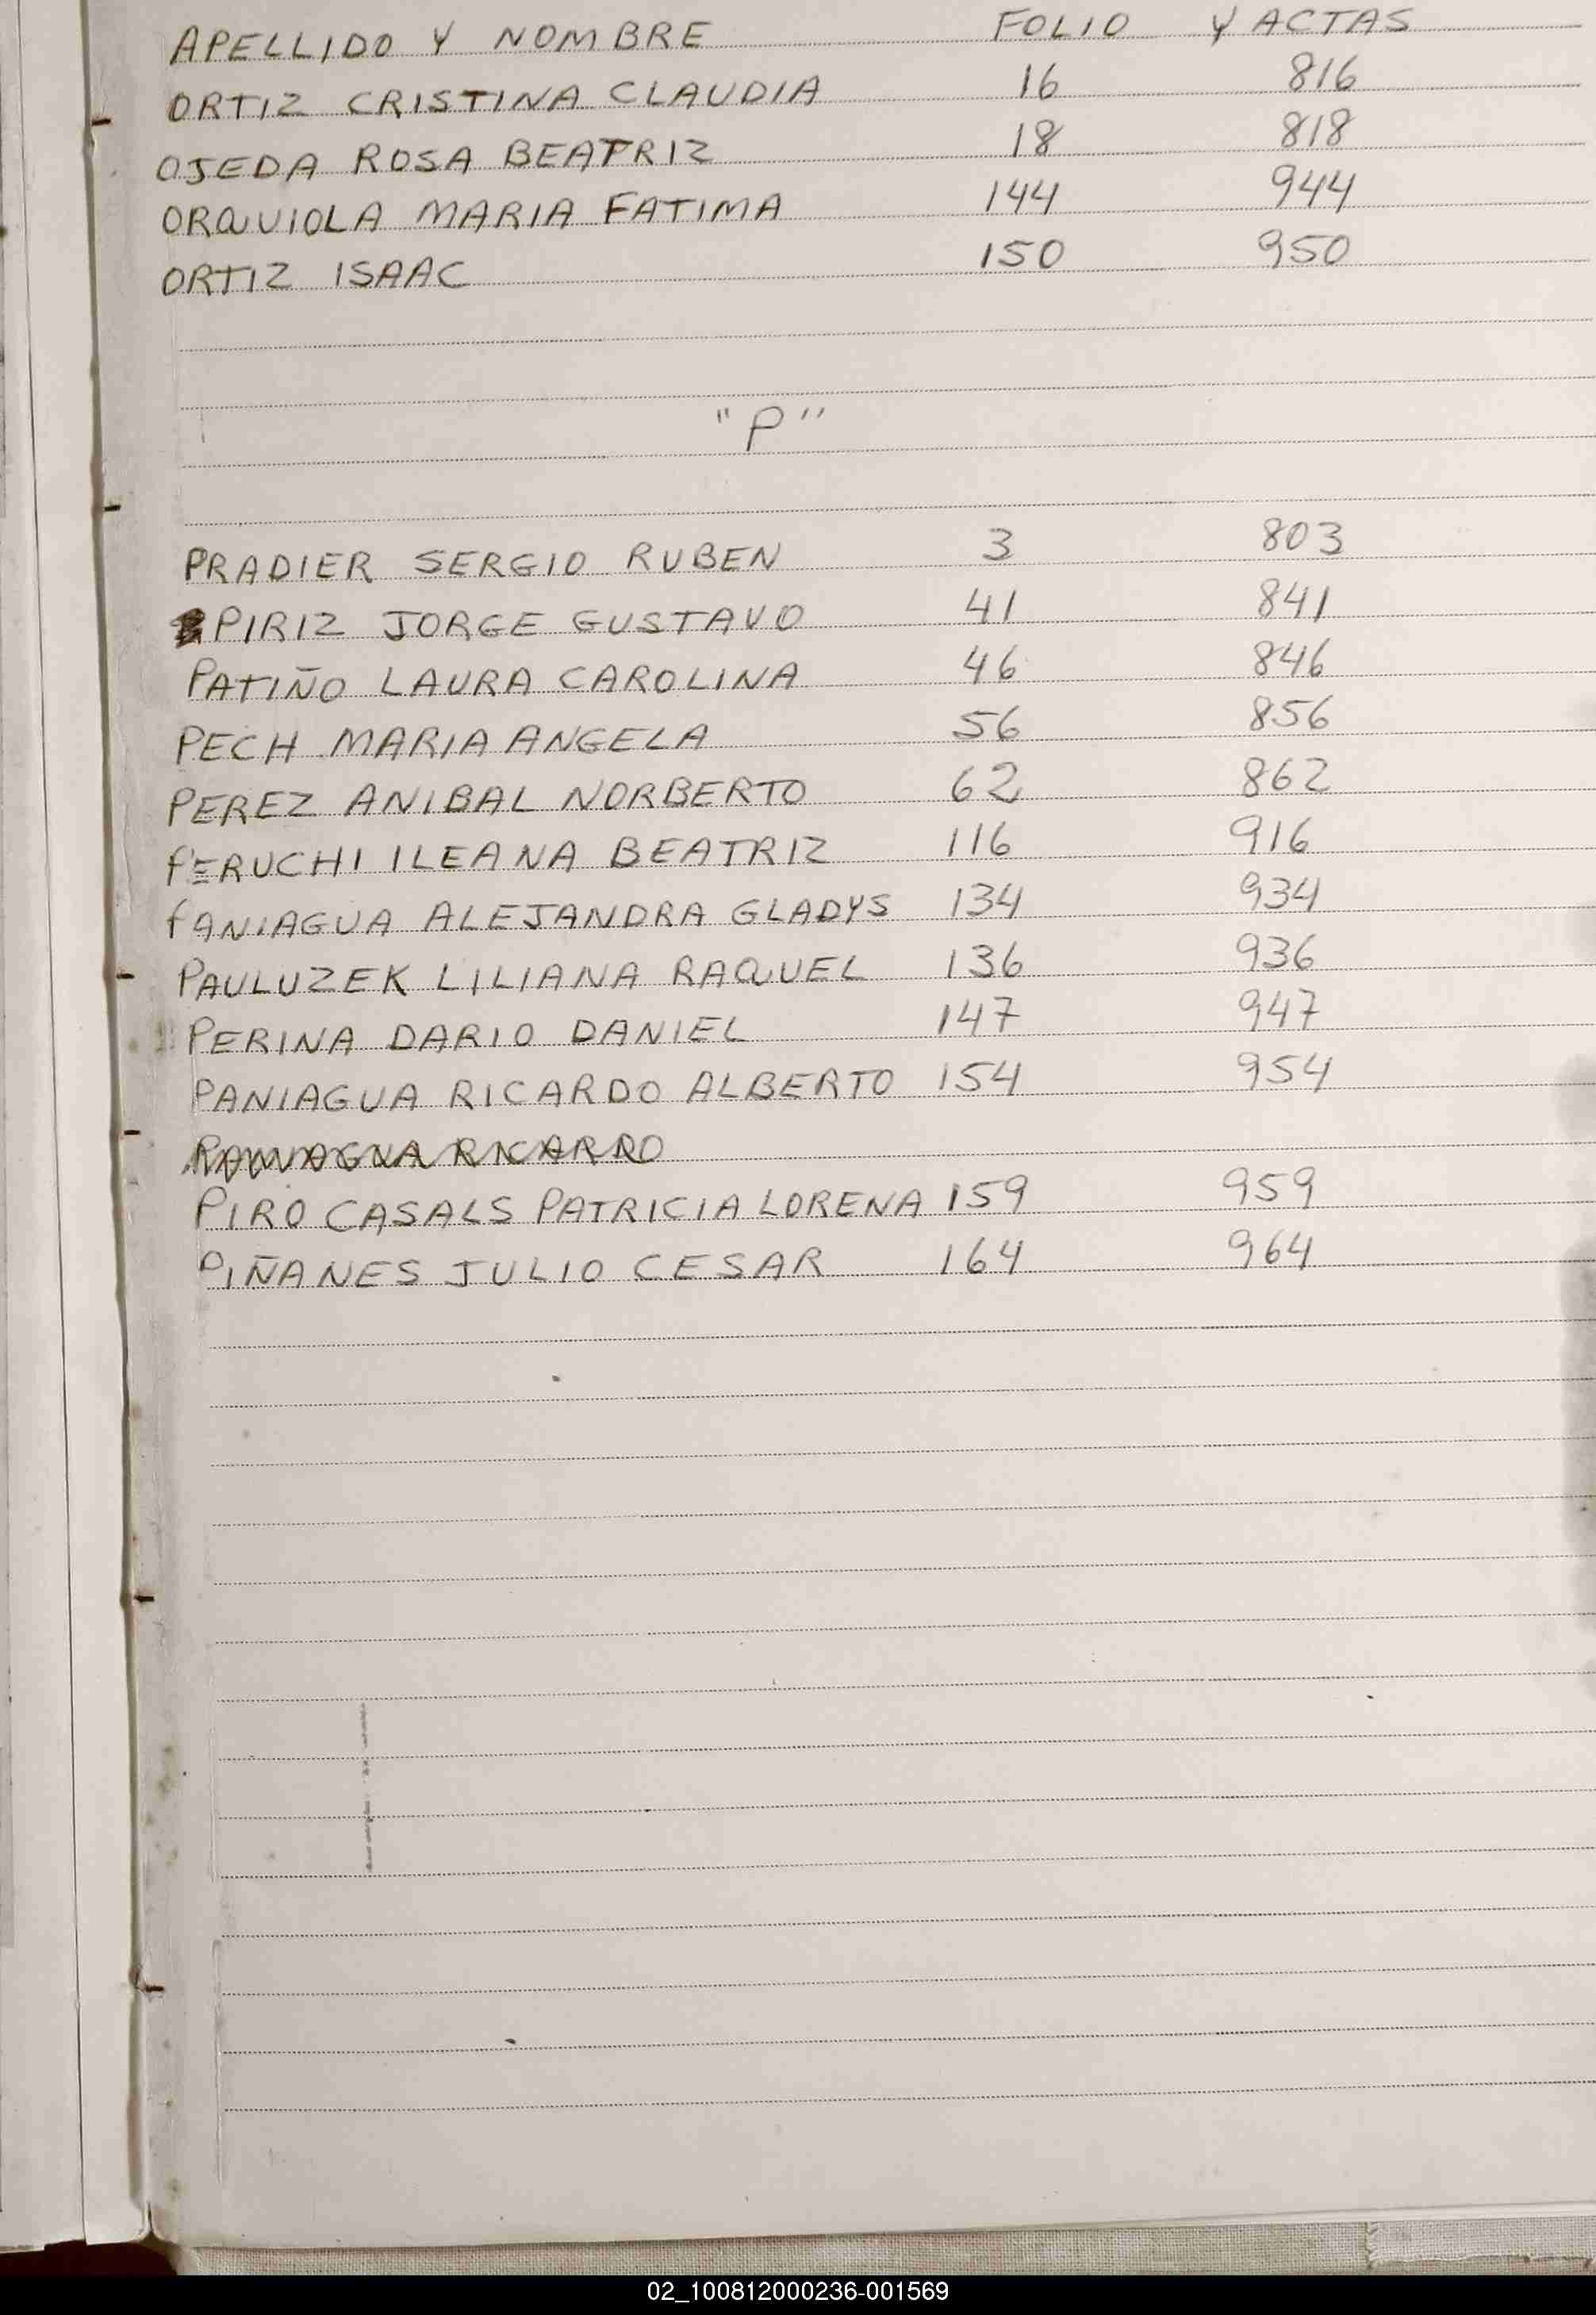 APELLIDO Y NOMBRE FOLIO Y ACTAS
ORTIZ CRISTINA CLAUDIA 16 816
OJEDA ROSA BEATRIZ 18 818
ORQUIOLA MARIA FATIMA 144 944
ORTIZ ISAAC 150 950
"P"
PRADIER SERGIO RUBEN 3 803
PIRIZ JORGE GUSTAVO 41 841
PATIÑO LAURA CAROLINA 46 846
PECH MARIA ANGELA 56 856
PEREZ ANIBAL NORBERTO 62 862
PERUCHI ILEANA BEATRIZ 116 916
PANIAGUA ALEJANDRA GLADYS 134 934
PAULUZEK LILIANA RAQUEL 136 936
PERINA DARIO DANIEL 147 947
PANIAGUA RICARDO ALBERTO 154 954
PIRO CASALS PATRICIA LORENA 159 959
PIÑANES JULIO CESAR 164 964
02_100812000236-001569